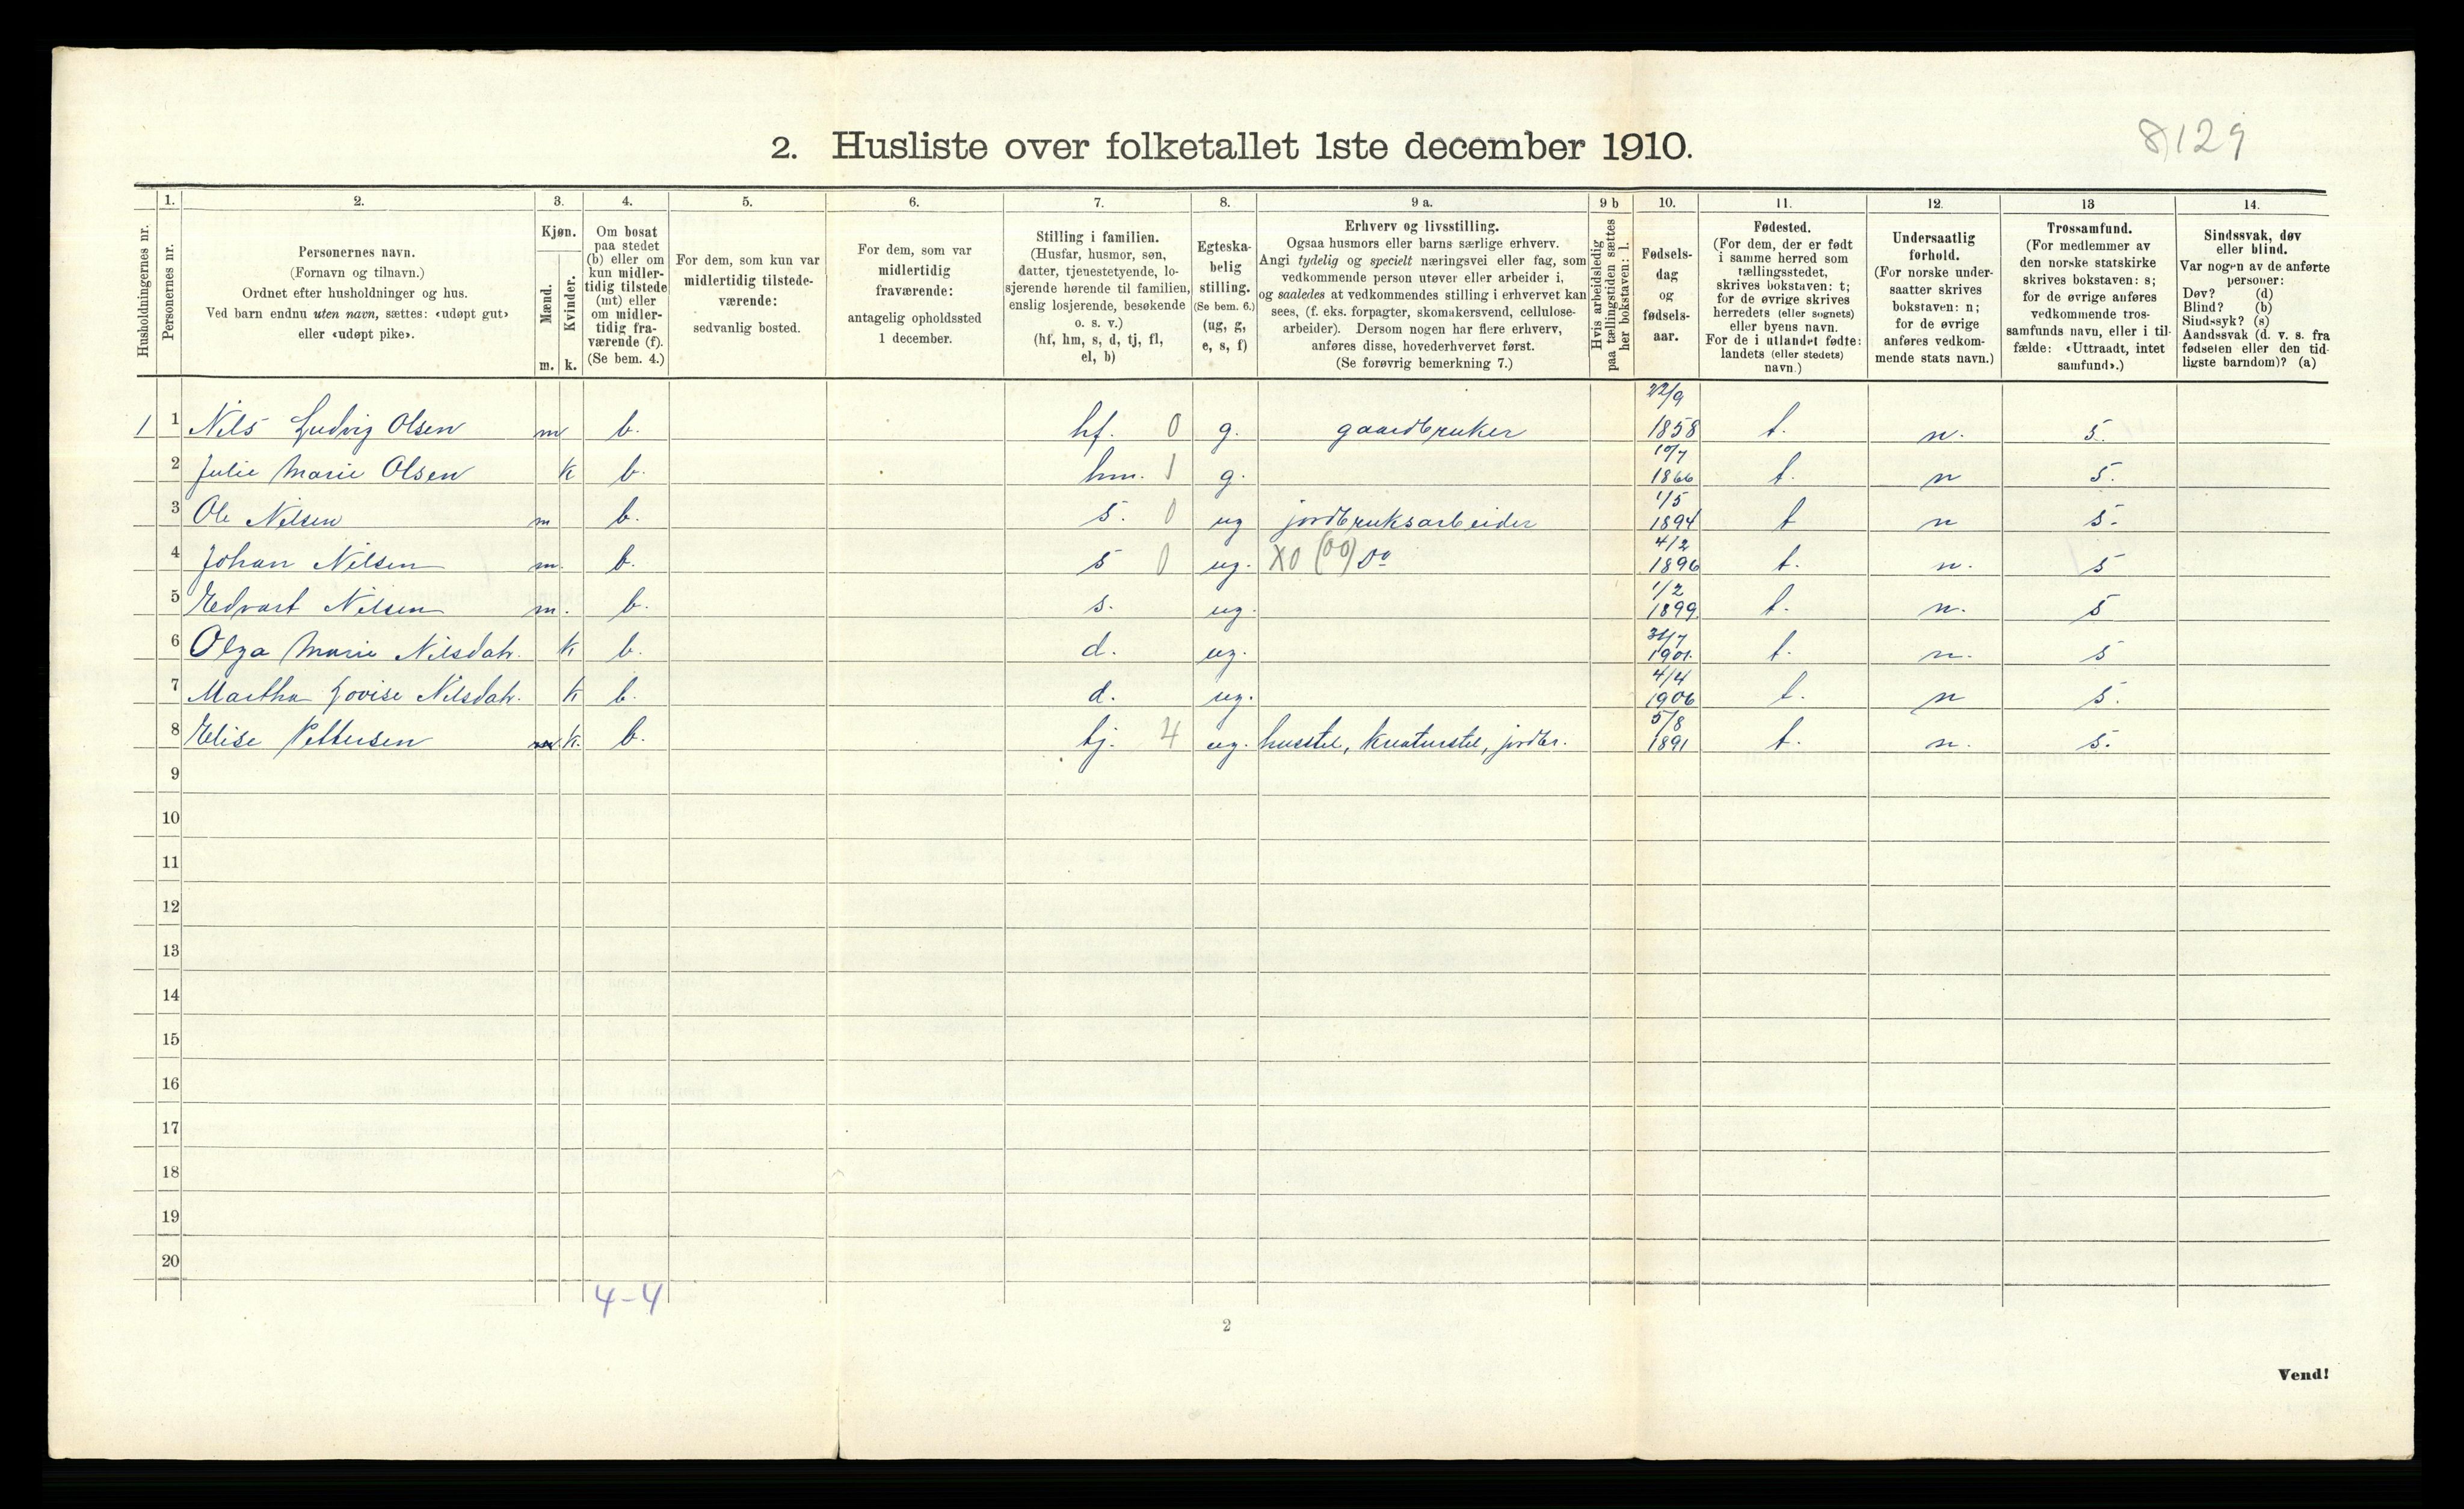 2. Husliste over folketallet 1ste december 1910.
8129
Husholdningernes nr.
1.
Personernes nr.
2.
Personernes navn.
(Fornavn og tilnavn.)
Ordnet efter husholdninger og hus.
Ved barn endnu uten navn, sættes: «udøpt gut»
eller «udøpt pike».
3.
Kjøn.
Mænd.
Kvinder.
m. k.
4.
Om bosat
paa stedet
(b) eller om
kun midler-
tidig tilstede
(mt) eller
om midler-
tidig fra-
værende (f).
(Se bem. 4.)
5.
For dem, som kun var
midlertidig tilstede-
værende:
sedvanlig bosted.
6.
For dem, som var
midlertidig
fraværende:
antagelig opholdssted
1 december.
7.
Stilling i familien.
(Husfar, husmor, søn,
datter, tjenestetyende, lo-
sjerende hørende til familien,
enslig losjerende, besøkende
o. s. v.)
(hf, hm, s, d, tj, fl,
el, b)
8.
Egteska-
belig
stilling.
(Se bem. 6.)
(ug, g,
e, s, f)
9 a.
Erhverv og livsstilling.
Ogsaa husmors eller barns særlige erhverv.
Angi tydelig og specielt næringsvei eller fag, som
vedkommende person utøver eller arbeider i,
og saaledes at vedkommendes stilling i erhvervet kan
sees, (f. eks. forpagter, skomakersvend, cellulose-
arbeider). Dersom nogen har flere erhverv,
anføres disse, hovederhvervet først.
(Se forøvrig bemerkning 7.)
9 b
Hvis arbeidsledig
paa tællingstiden sættes
her bokstaven: l.
10.
Fødsels-
dag
og
fødsels-
aar.
11.
Fødested.
(For dem, der er født
i samme herred som
tællingsstedet,
skrives bokstaven: t;
for de øvrige skrives
herredets (eller sognets)
eller byens navn.
For de i utlandet fødte:
landets (eller stedets)
navn.)
12.
Undersaatlig
forhold.
(For norske under-
saatter skrives
bokstaven: n;
for de øvrige
anføres vedkom-
mende stats navn.)
13
Trossamfund.
(For medlemmer av
den norske statskirke
skrives bokstaven: s;
for de øvrige anføres
vedkommende tros-
samfunds navn, eller i til-
fælde: «Uttraadt, intet
samfund».)
14.
Sindssvak, døv
eller blind.
Var nogen av de anførte
personer:
Døv? (d)
Blind? (b)
Sindssyk? (s)
Aandssvak (d. v. s. fra
fødselen eller den tid-
ligste barndom)? (a)
1 1 Nils Ludvig Olsen m b. hf. 0 g. gaardbruker 22/9 1858 t. n. s.
2 Julie Marie Olsen k b. hm. 1 g. 10/7 1866 t. n s.
3 Ole Nilsen m b. s. 0 ug jordbruksarbeider 1/5 1894 t n s.
4 Johan Nilsen m. b. s 0 ug. X0 (00) do 4/2 1896 t. n. s
5 Edvart Nilsen m. b. s. ug. 1/2 1899. t. n. s
6 Olga Marie Nilsdatr. k b. d. ug. 31/7 1901. t. n. s
7 Martha Lovise Nilsdatr. k b. d. ug. 4/4 1906 t. n s.
8 Elise Pettersen k. b. tj. 4 ug. husstel, kreaturstel, jordbr. 5/8 1891 t. n. s.
9
10
11
12
13
14
15
16
17
18
19
20
4-4
2
Vend!